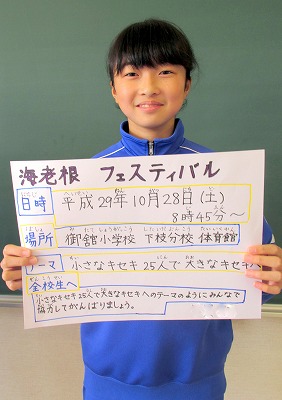 海老根 フェスティバル
日時 平成29年10月28日(土)
8時45分～
場所 御舘小学校 下枝分校 体育館
テーマ 小さなキセキ 25人で 大きなキセキへ
全校生へ
小さなキセキ25人で大きなキセキへのテーマのようにみんなで
協力してがんばりましょう。